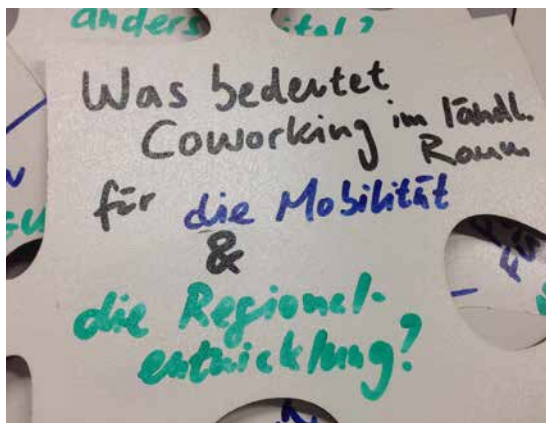 anders
Was bedeutet
Coworking im ländl.
Raum
für die Mobilität
&
die Regional-
entwicklung?